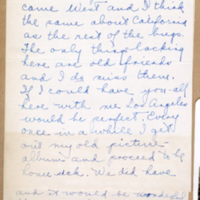 came West and I think
the same about California
as the rest of the bugs.
The only thing lacking
here are old friends
and I do miss them.
If I could have you-all
here with me Los Angeles
would be perfect. Every
once in a while I get
out my old picture
albums and proceed to be
home sick. We did have
and it would be wonderful